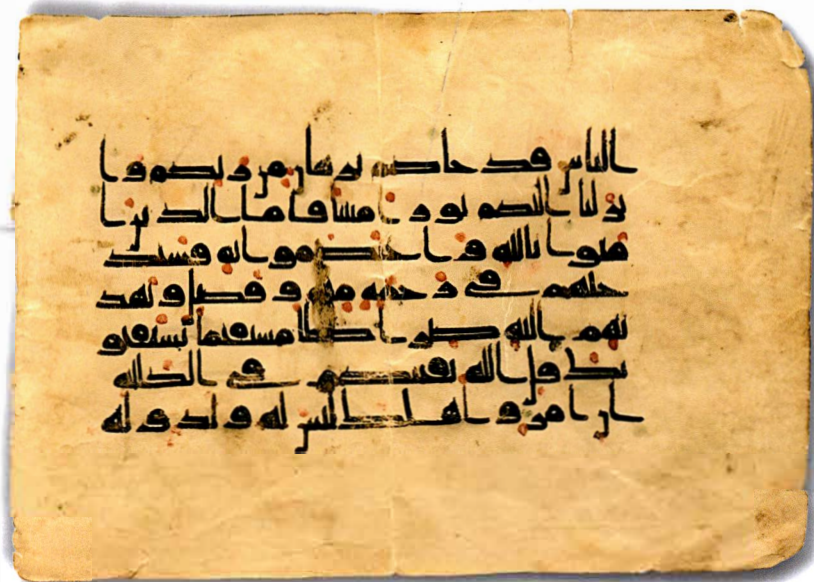 الناس قد جاكم برهن من ربكم وا
نزلنا اليكم نورا مبينا فاما الذين ا
منوا بالله واعتصموا به فسيد
خلهم في رحمه منه وفضل ويهد
يهم اليه صرطا مستقيما يستفتو
نك قل الله يفتيكم في الكلله
ان امروا هلك ليس له ولد وله